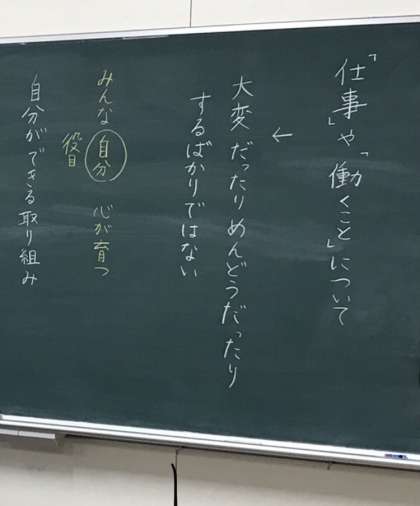 「仕事」や「働くこと」について
←
大変だったりめんどうだったり
するばかりではない
みんな 自分 心が育つ
役目
自分ができる取り組み